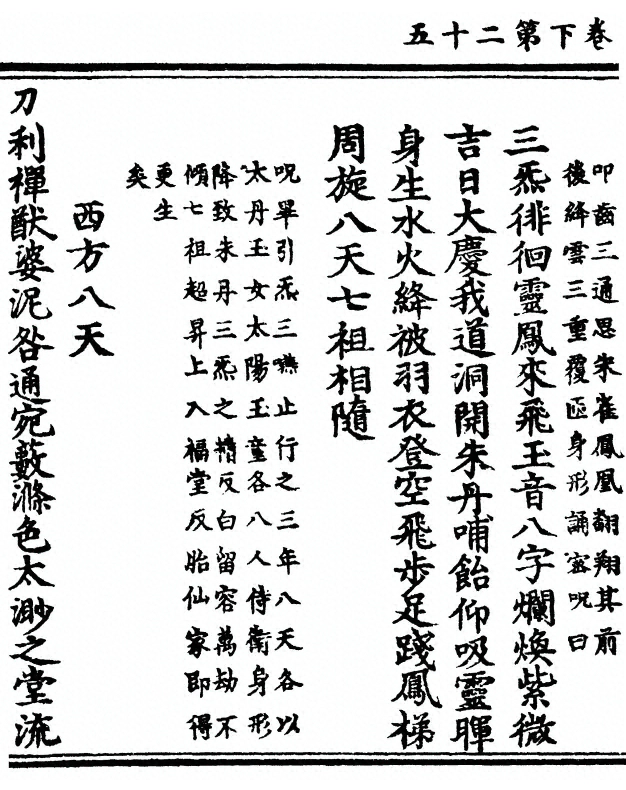 卷下第二十五
叩齒三通思朱雀鳳凰翻翔其前
後絳雲三重覆匝身形誦密呪曰
三炁徘徊靈鳳來飛玉音八字爛煥紫微
吉日大慶我道洞開朱丹哺飴仰吸靈暉
身生水火絳被羽衣登空飛步足踐鳳梯
周旋八天七祖相隨
呪畢引炁三嚥止行之三年八天各以
太丹玉女太陽玉童各八人侍衛身形
降致朱丹三炁之精反白留容萬劫不
傾七祖超昇上入福堂反胎仙家即得
更生
矣
西方八天
刀利樿猷婆泥咎通宛藪滌色太渺之堂流